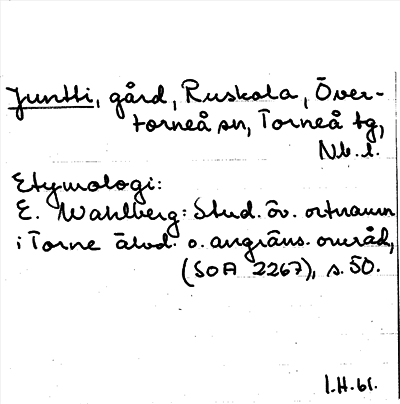 Juntti, gård, Ruskola, Över-
torneå sn, Torneå tg,
Nb. l.
Etymologi:
E. Wahlberg: Stud. öv. ortnamn
i Torne älvd. o. angräns. områd,
(SOA 2267), s. 50.
I.H. 61.